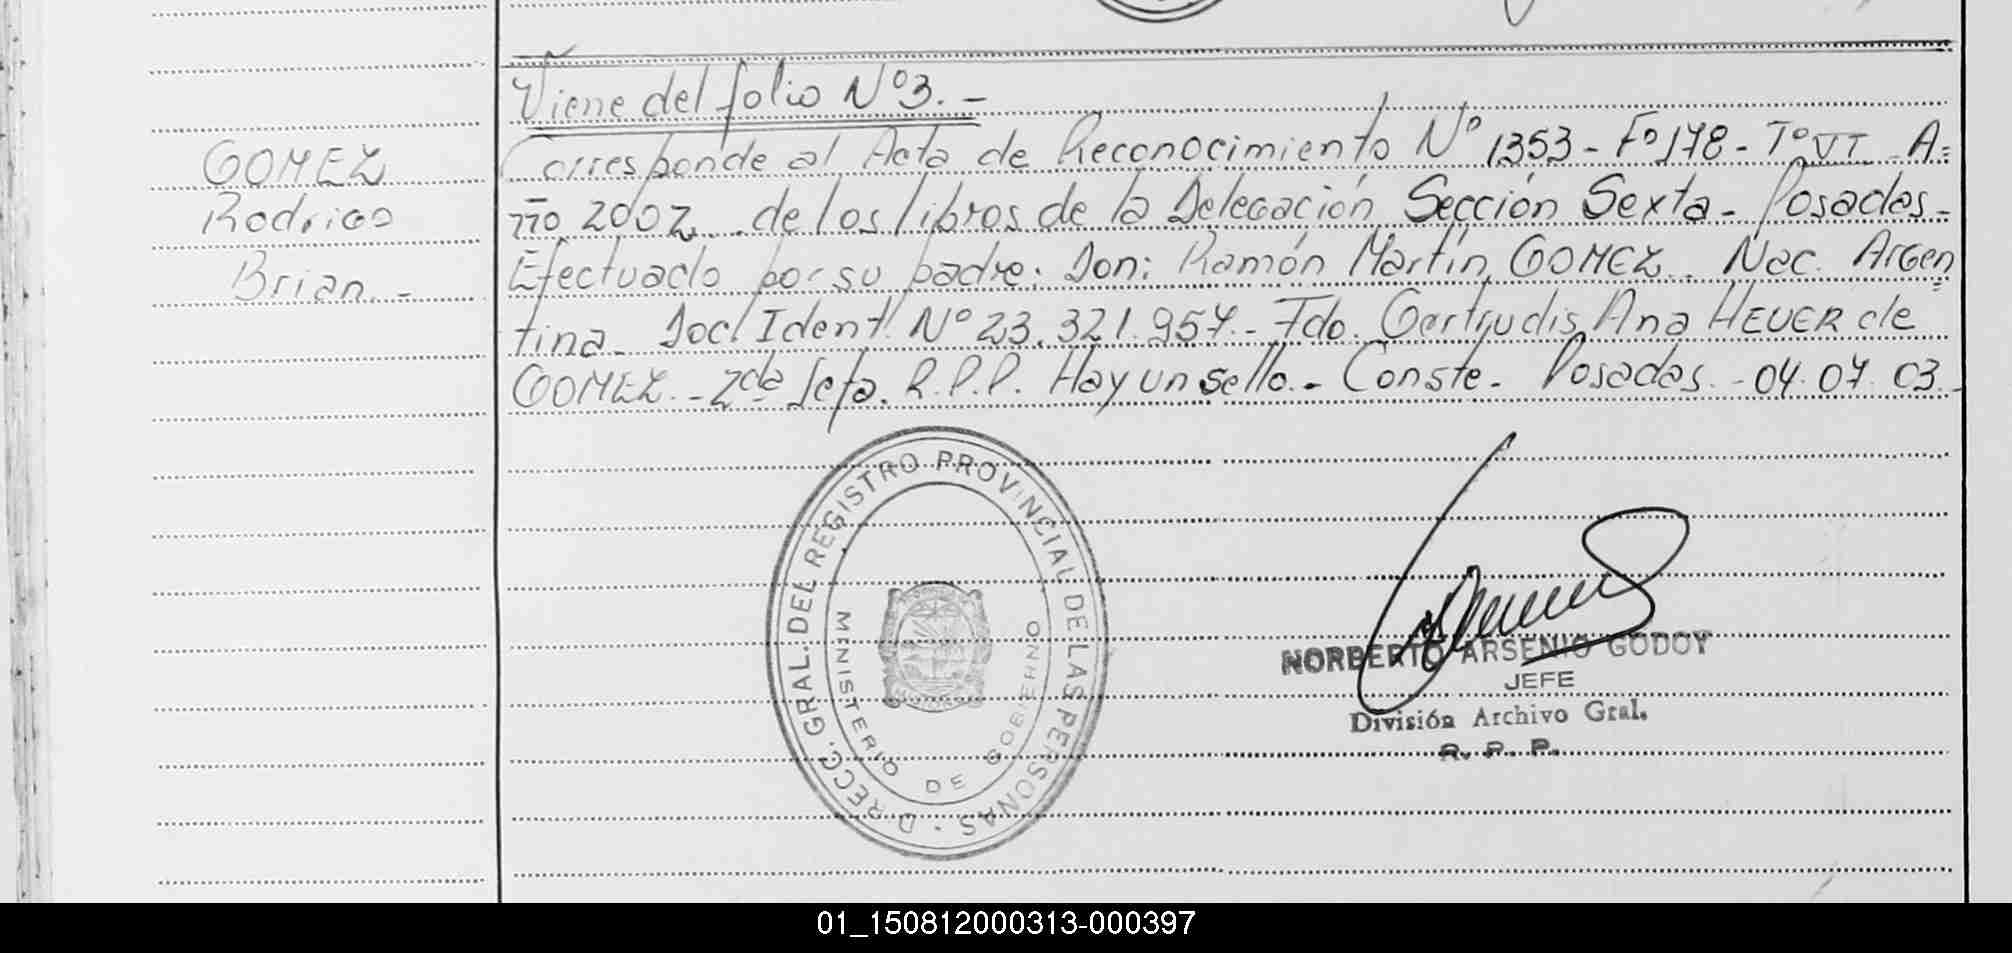 Viene del folio Nº3.-
GOMEZ
Rodrigo
Brian.-
Corresponde al Acta de Reconocimiento Nº 1353 - Fº178 - Tº VI - A=
ño 2002 de los libros de la Delegación Sección Sexta - Posadas -
Efectuado por su padre. Don: Ramón Martín GOMEZ.. Nac. Argen=
tina - Doc Ident Nº 23.321.957.- Fdo. Gertrudis Ana HEUER de
GOMEZ.- 2da Jefa. R.P.P. Hay un sello.- Conste - Posadas - 04.07.03.-
DIRECC. GRAL. DEL REGISTRO PROVINCIAL DE LAS PERSONAS
MINISTERIO DE GOBIERNO
NORBERTO ARSENIO GODOY
JEFE
División Archivo Gral.
R. P. P.
01_150812000313-000397